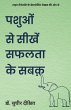 पशुओं
से सीखें
सफलता
के सबक़
डॉ. सुधीर दीक्षित